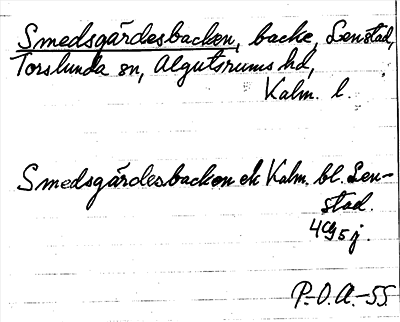 Smedsgärdesbacken, backe, Lenstad,
Torslunda sn, Algutsrums hd,
Kalm. l.
Smedsgärdesbacken ek Kalm. bl. Len-
stad.
4G5j.
P.-O.A.-55